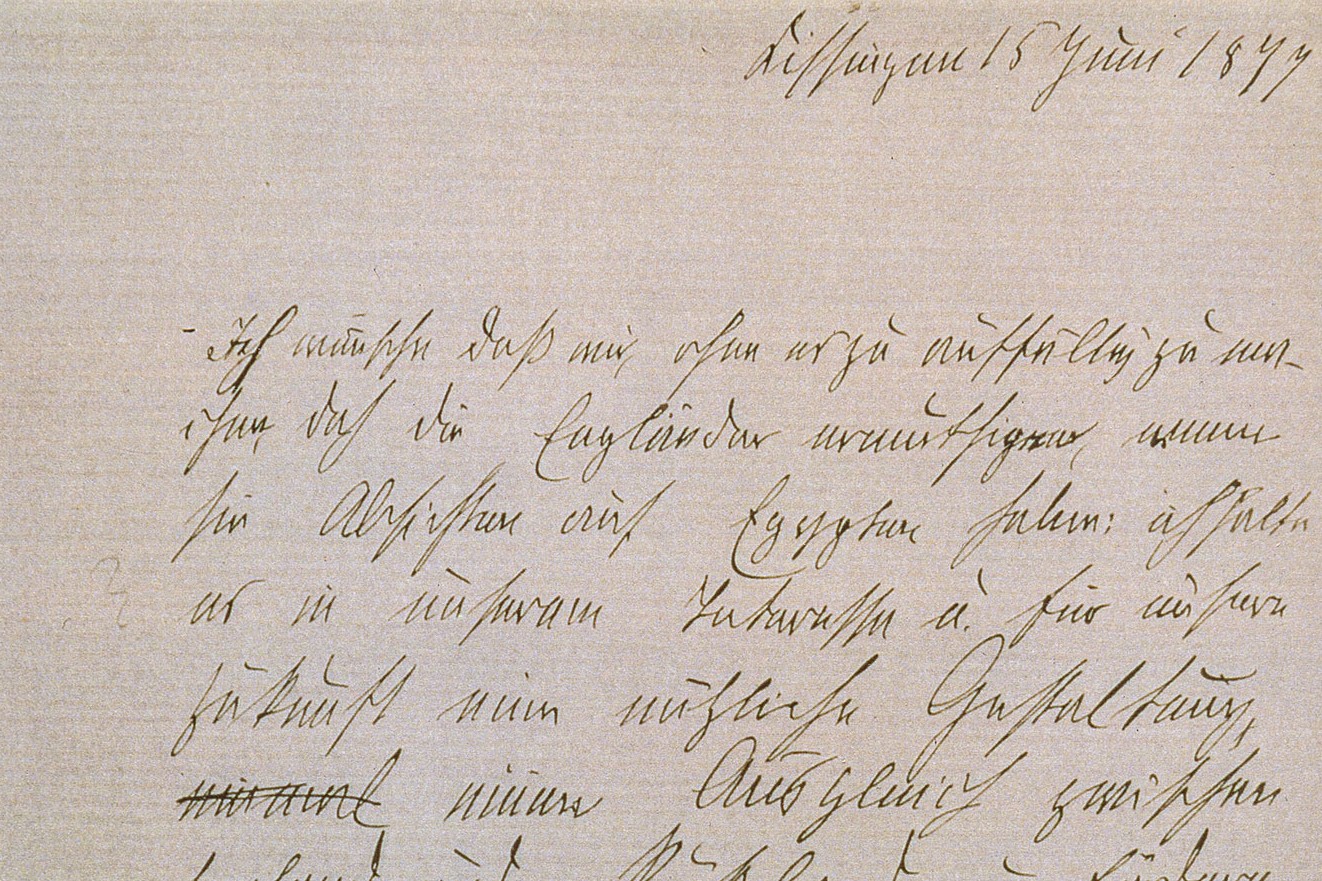 Kissingen 15 Juni 1877
Ich wünsche daß wir, ohne es zu auffällig zu ma-
chen, doch die Engländer ermuthigen, wenn
sie Absichten auf Egypten haben: ich halte
es in unserem Interesse u. für unsere
Zukunft eine nützliche Gestaltung,
einen Ausgleich zwischen